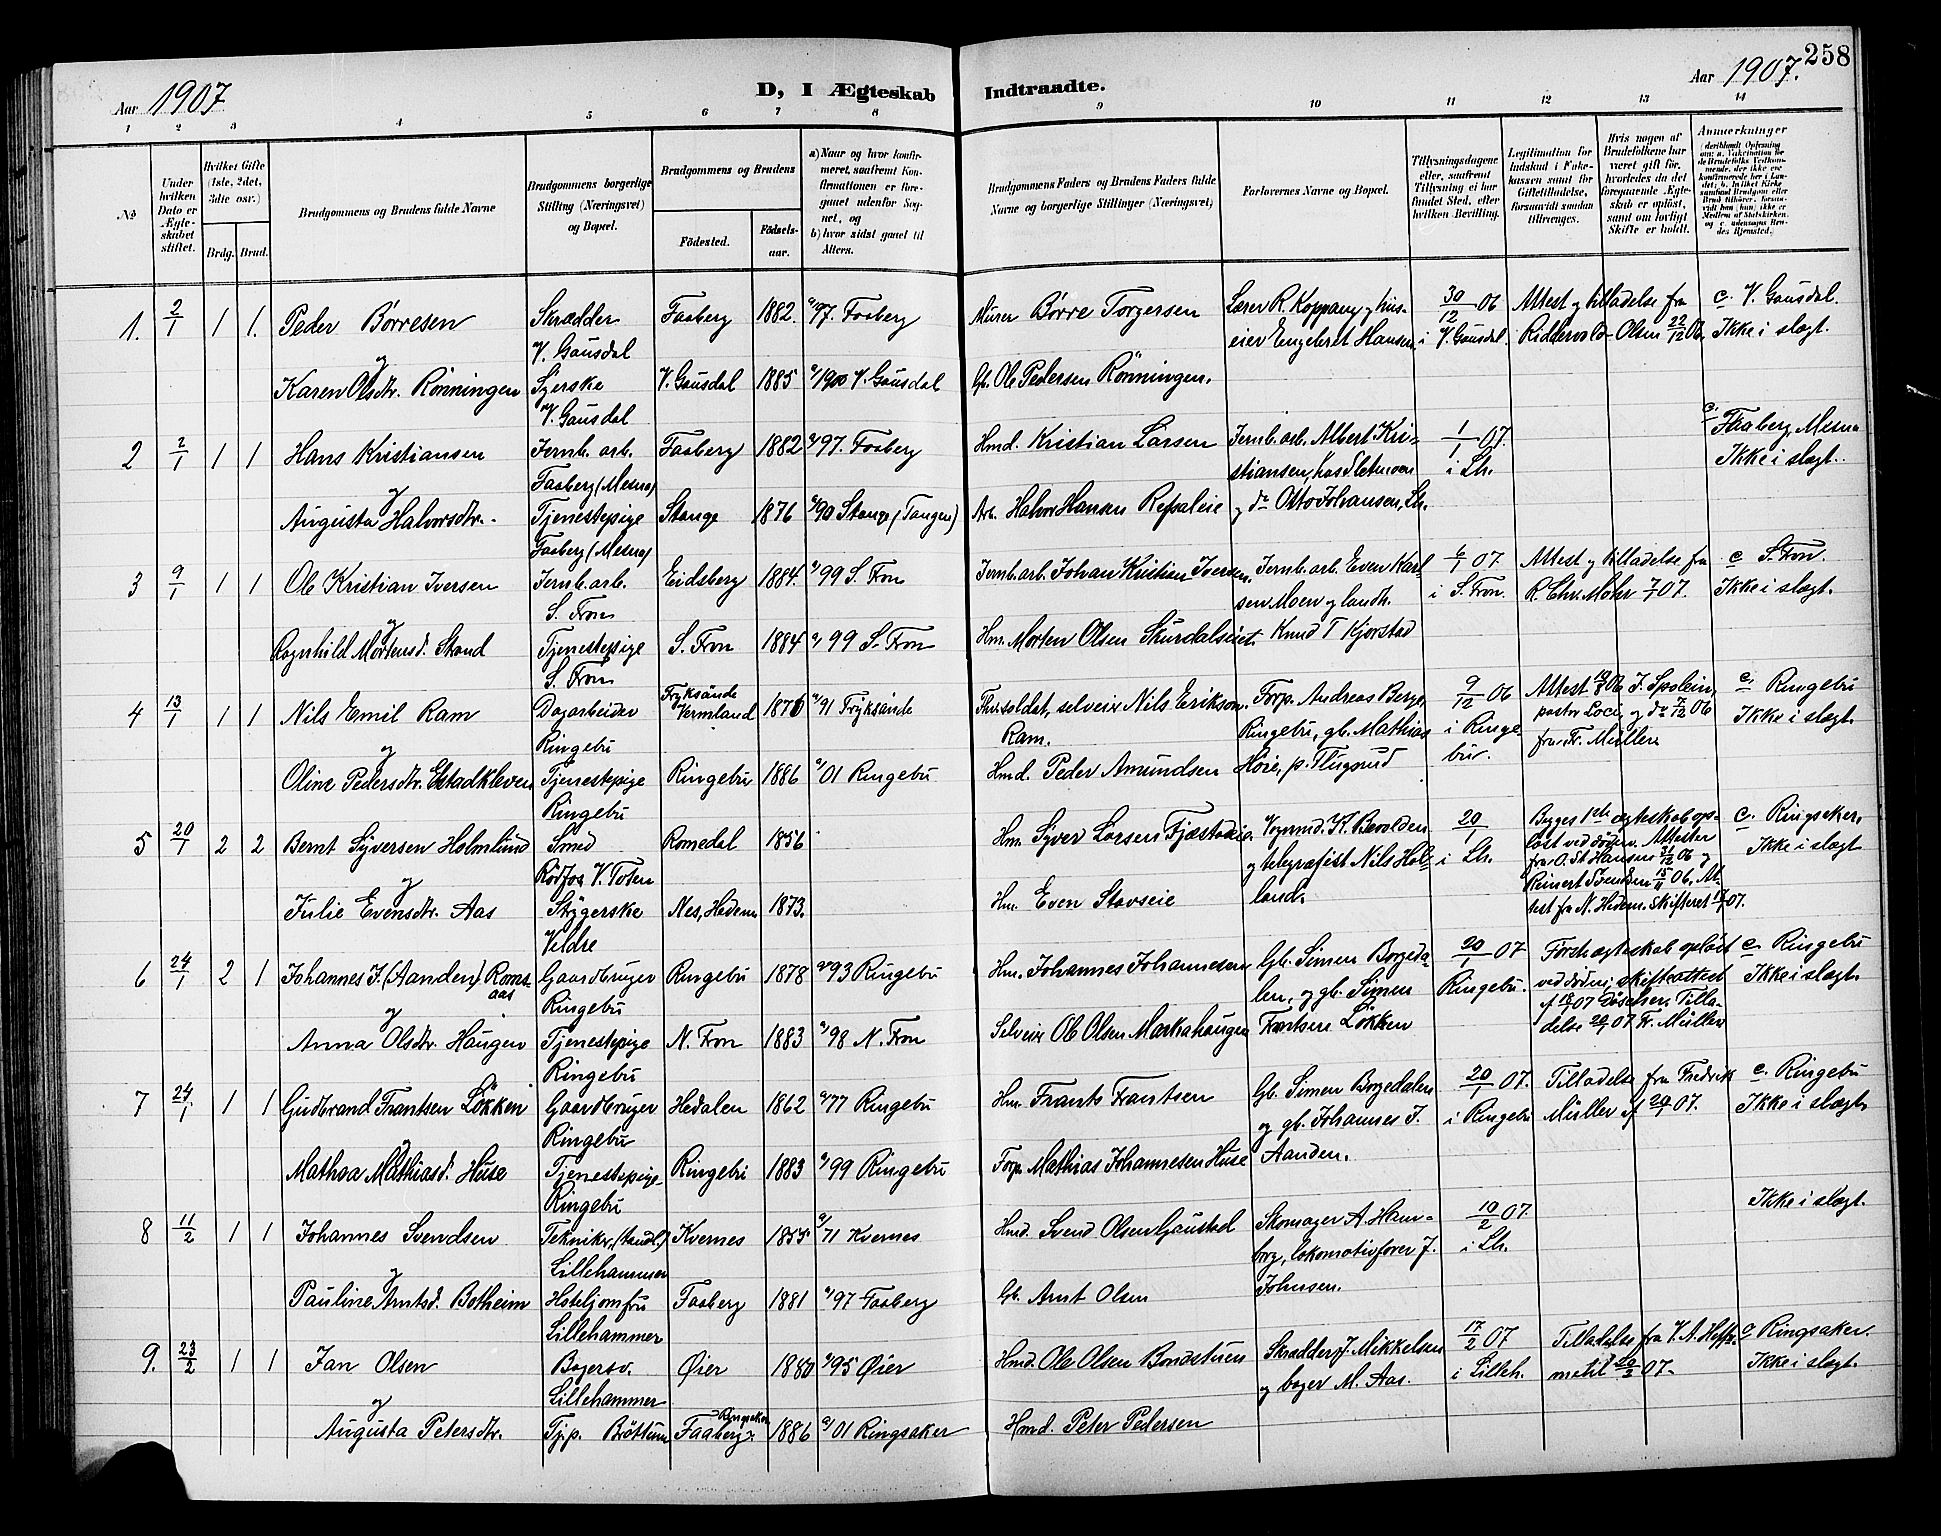 258
Aar 1907
D, I Ægteskab Indtraadte.
Aar 1907.
1 2 3 4 5 6 7 8 9 10 11 12 13 14
No
Under hvilken Dato er Ægteskabet stiftet.
Hvilket Gifte (1ste, 2det, 3die osv.)
Brdg. Brud.
Brudgommens og Brudens fulde Navne
Brudgommens borgerlige Stilling (Næringsvei) og Bopæl.
Brudgommens og Brudens
Födested.
Födselsaar.
a) Naar og hvor konfirmeret, saafremt Konfirmationen er foregaaet udenfor Sognet, og
b) hvor sidst gaaet til Alters.
Brudgommens Faders og Brudens Faders fulde Navne og borgerlige Stillinger (Næringsvei)
Forlovernes Navne og Bopæl.
Tillysningsdagene eller, saafremt Tillysning ei har fundet Sted, efter hvilken Bevilling.
Legitimation for Indskud i Enkekassen samt for Giftetilladelse, forsaavidt saadan tiltrænges.
Hvis nogen af Brudefolkene har været gift før, hvorledes da det foregaaende Ægteskab er opløst, samt om lovligt Skifte er holdt.
Anmerkninger
1. 2/1 1 1. Peder Börresen Skrædder Faaberg 1882. 97. Faaberg Murer Börre Torgersen Lærer R. Koppang og hus- 30/12 06 Attest og tilladelse fra c. V. Gausdal.
V. Gausdal eier Engebret Hansen, i V. Gausdal. Riddervold-Olsen 22/12 06. Ikke i slægt.
og
Karen Olsdtr. Rönningen Syerske V. Gausdal 1885 1900 V. Gausdal Gb. Ole Pedersen Rönningen.
V. Gausdal
2 2/1 1 1 Hans Kristiansen Jernb. arb. Faaberg 1882 97. Faaberg Hmd. Kristian Larsen Jernb. arb. Albert Kri- 1/1 07. c. Faaberg, Mesna
Faaberg (Mesna) stiansen, i Lh. Ikke i slægt.
og
Augusta Halvorsdtr. Tjenestepige Stange 1876 90 Stange (Tangen) Arb. Halvor Hansen Refsaleie og do Otto Johansen, Lh.
Faaberg (Mesna)
3 9/1 1 1 Ole Kristian Iversen Jernb. arb. Eidsberg 1884. 99 S. Fron Jernb. arb. Johan Kristian Iversen. Jernb. arb. Even Karl- 6/1 07. Attest og tilladelse fra c S. Fron.
S. Fron sen Moen og landh. i S. Fron. R. Chr. Mohr 7/1 07. Ikke i slægt.
og
Ragnhild Mortensd. Strand Tjenestepige S. Fron 1884 99 S. Fron Hm. Morten Olsen Skurdalseiet. Knud T Kjorstad
S. Fron
4 13/1 1 1 Nils Emil Ram Dagarbeider Fryksände Vermland 1876 91 Fryksände selveier Nils Erikson Forp. Andreas Berge, 9/12 06 Attest c. Ringebu
Ringebu Ram. Ringebu, gb. Mathias i Ringe- pastor Loci, og do 7/12 06 Ikke i slægt.
og
Oline Pedersdtr. Ekstadkleven Tjenestepige Ringebu 1886 01 Ringebu Hmd. Peder Amundsen Høie, p. Flugsrud bu. fra Fr. Müller
Ringebu
5 20/1 2 2 Bernt Syversen Holmlund Smed Romedal 1856 Hm. Syver Larsen Fjæstadeie. Vognmd. K. Bævolden 20/1 Begges 1ste ægteskab op- c. Ringsaker.
Rödfos V. Toten og telegrafist Nils Hol- i Lh. löst ved döden. Attester Ikke i slægt
fra O. St Hansen 31/12 06 og
og
Julie Evensdtr. Aas Strygerske Nes, Hedem. 1873. Hm. Even Stavseie land. Reinert Svendsen 15/11 06, At-
Veldre test fra N. Hedem. skifteret 17/1 07.
6 24/1 2 1 Johannes J. (Aanden) Romsaas Gaardbruger Ringebu 1878 93 Ringebu Hm. Johannes Johannesen Gb. Simen Borgeda- 20/1 07 Förste ægteskab oplöst c. Ringebu
Ringebu len, og gb. Simen Ringebu. ved döden; skifteattest Ikke i slægt.
og
Anna Olsdtr. Haugen Tjenestepige N. Fron 1883 98 N. Fron Selveier Ole Olsen Markahaugen Frantsen Løkken Tilladelse 20/1 07 Fr. Müller
Ringebu
7 24/1 1 1 Gudbrand Frantsen Løkken Gaardbruger Hedalen 1862 77 Ringebu Hm. Frants Frantsen Gb. Simen Borgedalen 20/1 07. Tilladelse fra Fredrik c. Ringebu
Ringebu og gb. Johannes J. i Ringebu Müller af 20/1 07. Ikke i slægt.
og
Mathea Mathiasd. Huse Tjenestepige Ringebu 1883 99 Ringebu Forp. Mathias Johannesen Huse Aanden.
Ringebu
8 11/2 1 1 Johannes Svendsen Tekniker, Kvernes 1855 71 Kvernes Hmd. Svend Olsen Gaustad Skomager A. Ham- 10/2 07. Ikke i slægt.
Lillehammer borg, lokomotivforer J. i Lh.
og
Pauline Arntsd. Botheim Hoteljomfru Faaberg 1881 97 Faaberg Gb. Arnt Olsen Johnsen.
Lillehammer
9. 23/2 1 1 Jan Olsen Bagersv. Øier 1880 95 Øier Hmd. Ole Olsen Bondstuen Skrædder J. Mikkelsen 17/2 07 Tilladelse fra c Ringsaker.
Lillehammer og bager M. Aas. i Lilleh. 20/2 07. Ikke i slægt.
og
Augusta Petersdtr. Tj.p. Bröttum Faaberg Ringsaker 1886 01 Ringsaker Hmd. Peter Pedersen